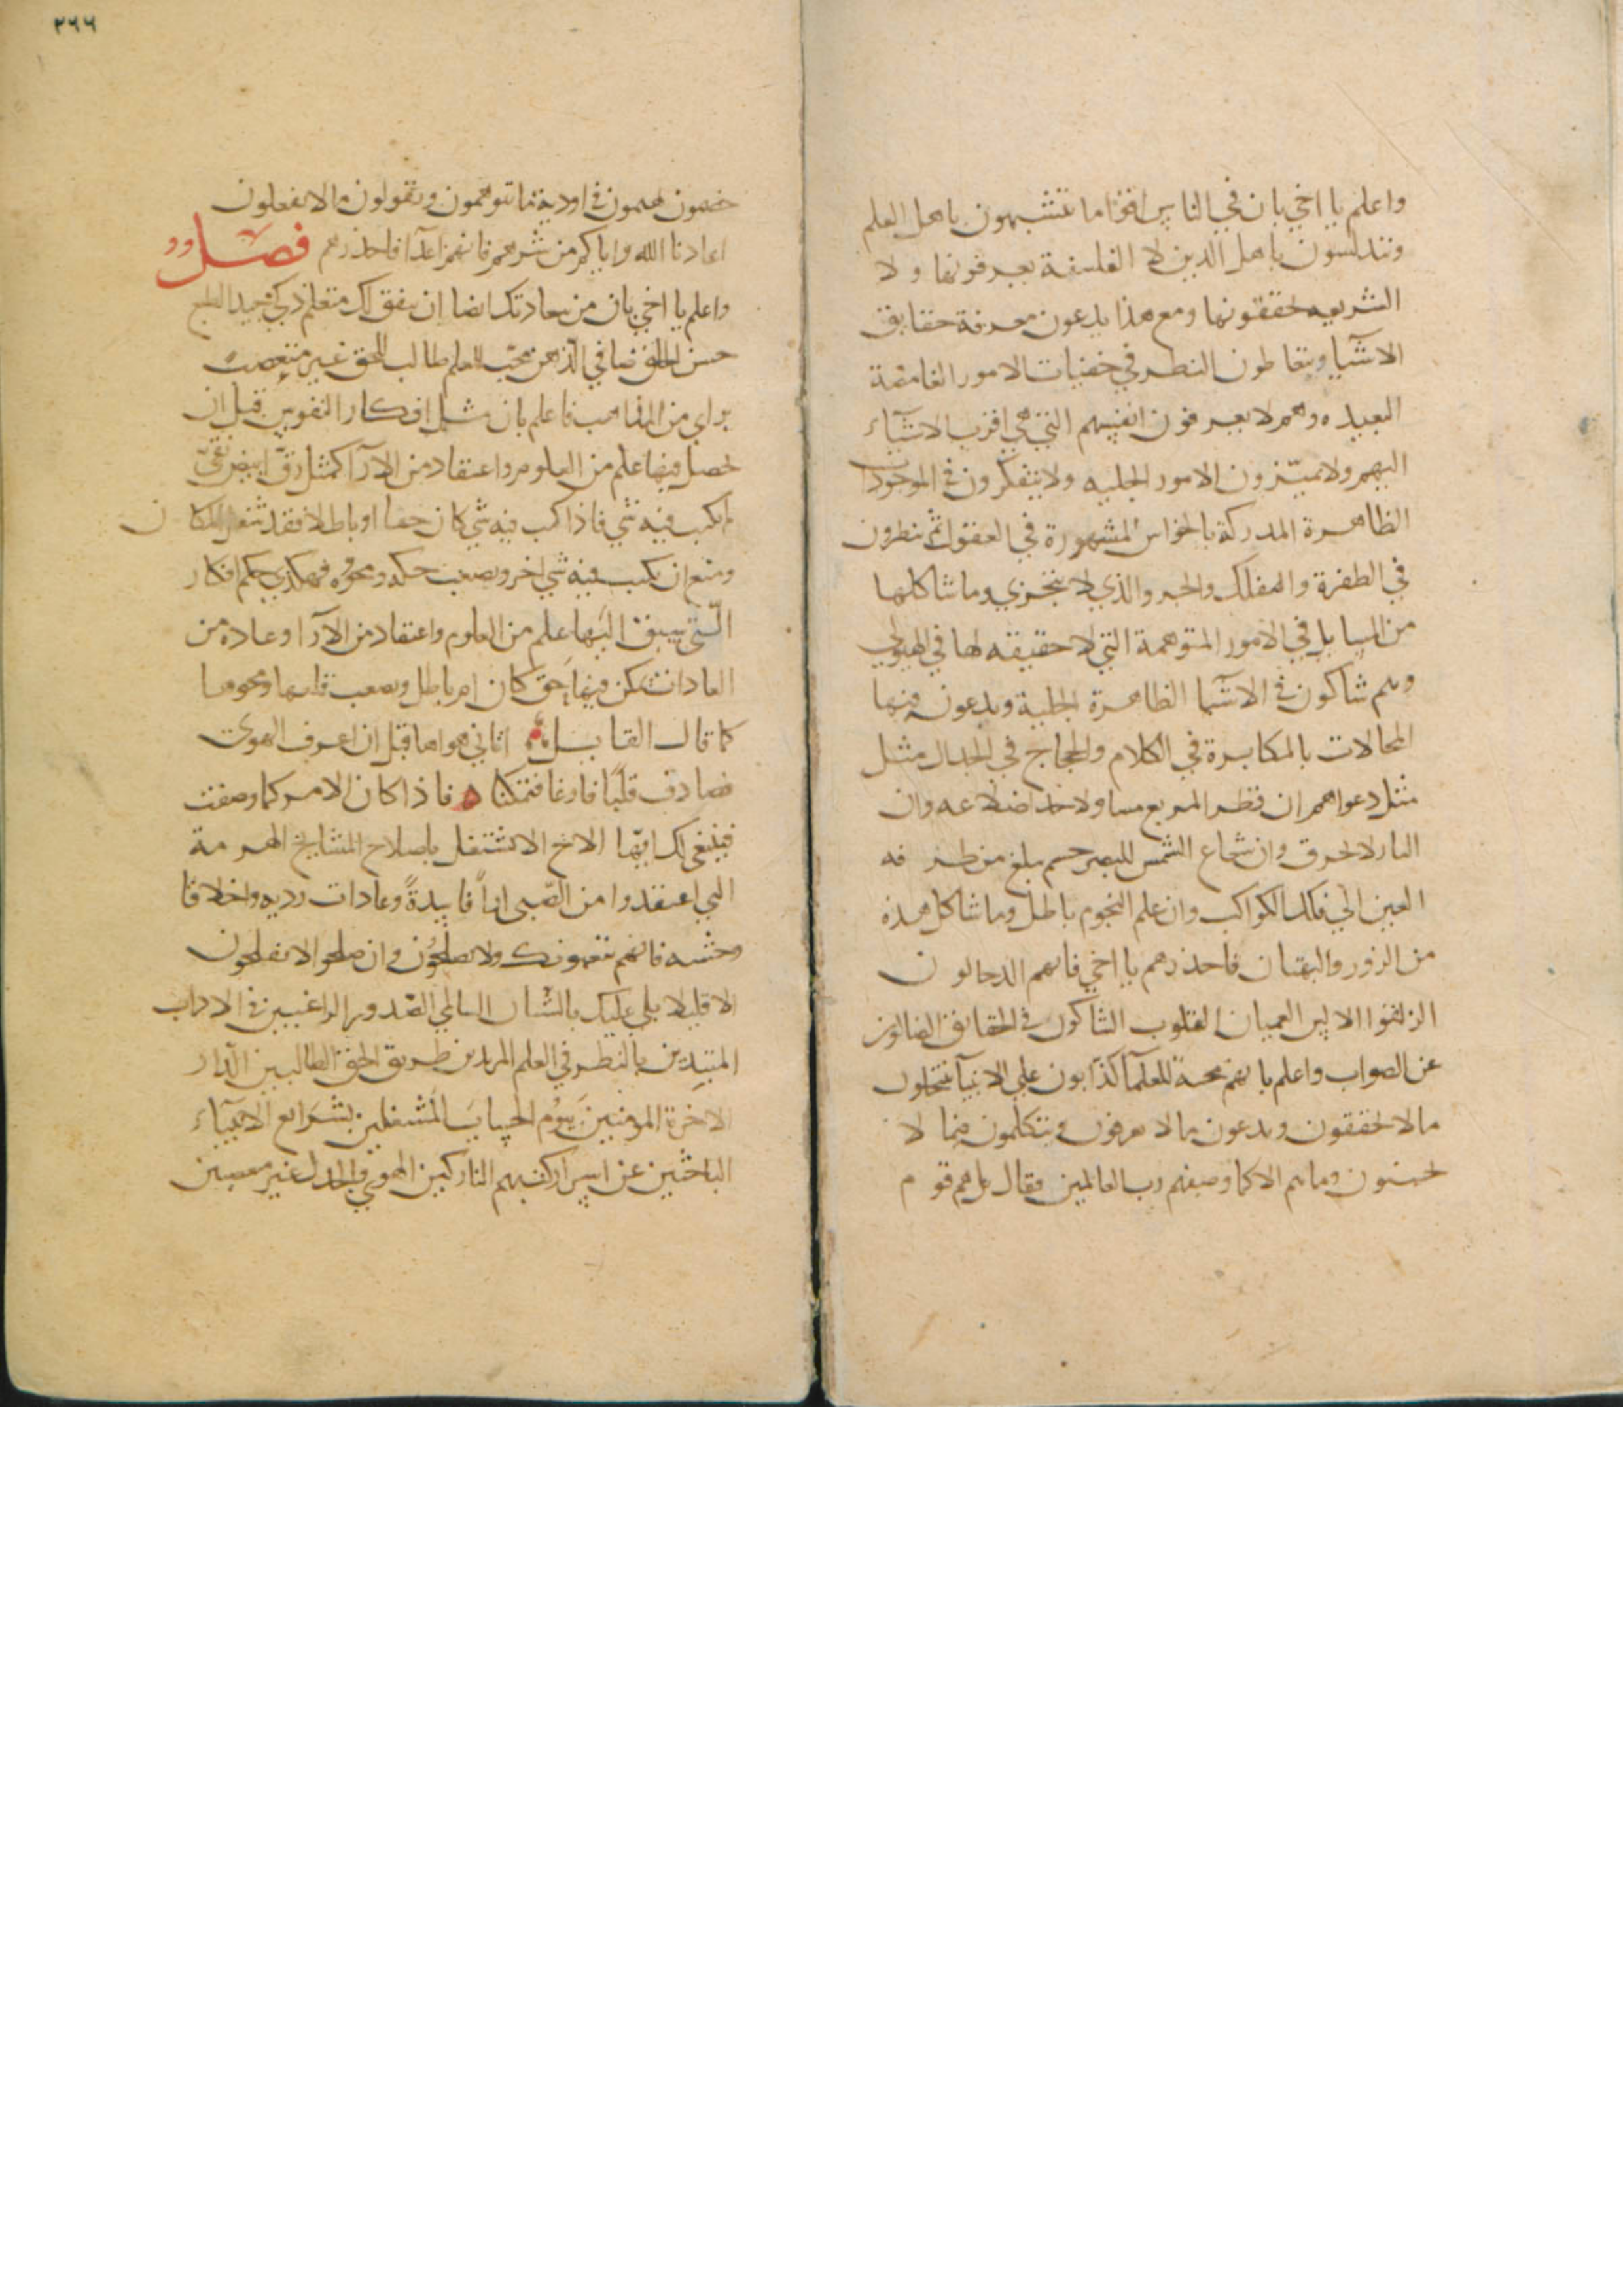 واعلم يا اخي بان في الناس اقواما يتشبهون باهل العلم
ويتدلسون باهل الدين لا الفلسفة يعرفونها ولا
الشريعه يحققونها ومع هذا يدعون معرفة حقايق
الاشيا ويتعاطون النظر في خفيات الامور الغامضة
البعيده وهم لا يعرفون انفسهم التي هي اقرب الاشياء
اليهم ولا يميّزون الامور الجليه ولا يتفكرون في الموجودات
الظاهرة المدركة بالحواس المشهورة في العقول ثم ينظرون
في الطفرة والفلك والجزو الذي لا يتجزي وما شاكلها
من المسايل في الامور المتوهمة التي لا حقيقه لها في الهيولي
وهم شاكون في الاشيا الظاهرة الجلية ويدعون فيها
المحالات بالمكابرة في الكلام والحجاج في الجدال مثل
مثل دعواهم ان قطر المربع مساو لاحد اضلاعه وان
النار لا تحرق وان شعاع البصر جسم يبلغ من طرفه
العين الي فلك الكواكب وان علم النجوم باطل وما شاكل هذه
من الزور والبهتان فاحذرهم يا اخي فانهم الدجالون
الذلقوا الالسن العميان القلوب الشاكون في الحقايق الضالون
عن الصواب واعلم بانهم محنة للعلمآ كذابون علي الانبيآ ينتحلون
ما لا يحققون ويدعون ما لا يعرفون ويتكلمون فيما لا
يحسنون وما هم الا كما وصفهم رب العالمين فقال بل هم قوم
٢٦٦
خصمون يهيمون في اودية ما يتوهمون ويقولون ما لا يفعلون
اعاذنا الله واياكم من شرهم فانهم اعدآ فاحذرهم فصل
واعلم يا اخي بان من سعادتك ايضا ان يتفق لك متعلم ذكي جيد الطبع
حسن الخلق صافي الذهن محب للعلم طالب للحق غير متعصب
براي من المذاهب فاعلم بان مثل افكار النفوس قبل ان
يحصل فيها علم من العلوم واعتقاد من الآرآ كمثل رق ابيض نقيّ
لم يكتب فيه شي فاذا كتب فيه شي كان حقا او باطلا فقد شغل المكان
ومنع ان يكتب فيه شي اخر ويصعب حكه ومحوه فهكذي حكم افكار
الّتي يسبق اليها علم من العلوم واعتقاد من الآرا وعادة من
العادات تمكن فيها حق كان ام باطل ويصعب قلبها ومحوها
كما قال القايل اتاني هواها قبل ان اعرف الهوى
فصادف قلبًا فارغا فتمكنا ه فاذا كان الامر كما وصفت
فينبغي لك ايّها الاخ الا تشتغل باصلاح المشايخ الهرمة
الذي اعتقدوا من الصّبي ارآً فاسدةً وعادات رديه واخلاقا
وحشيه فانهم يتعبونك ولا يصلحُون وان صلحوا لا يفلحون
الا قليلا بلي عليك بالشبان السالمي الصّدور الراغبين في الاداب
المبتدين بالنظر في العلم المريدين طريق الحق الطالبين الدار
الاخرة المومنين بيوم الحساب المستعملين بشرايع الانبيآء
الباحثين عن اسرار كتبهم التاركين الهوي والجدل غير متعصبين